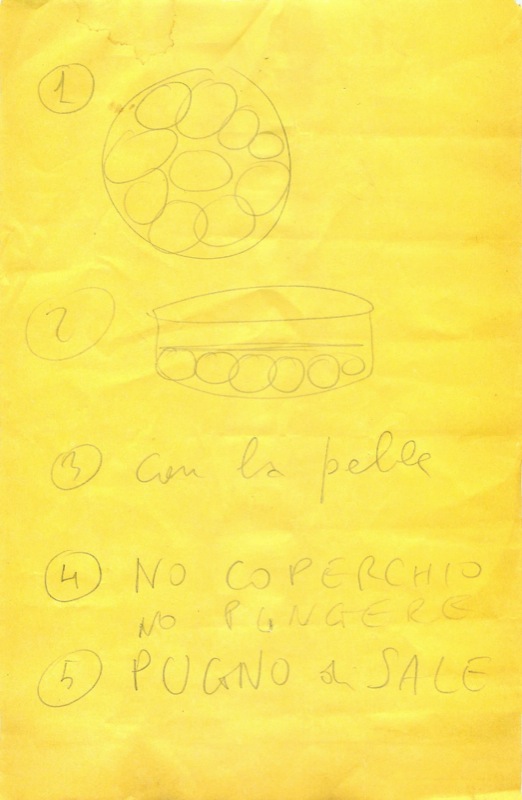 1
2
3 con la pelle
4 NO COPERCHIO
NO PUNGERE
5 PUGNO di SALE